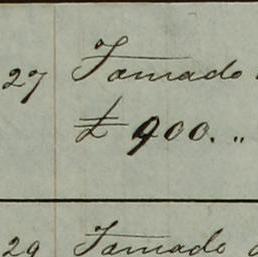 27 Tomado
£ 900. „
29 Tomado